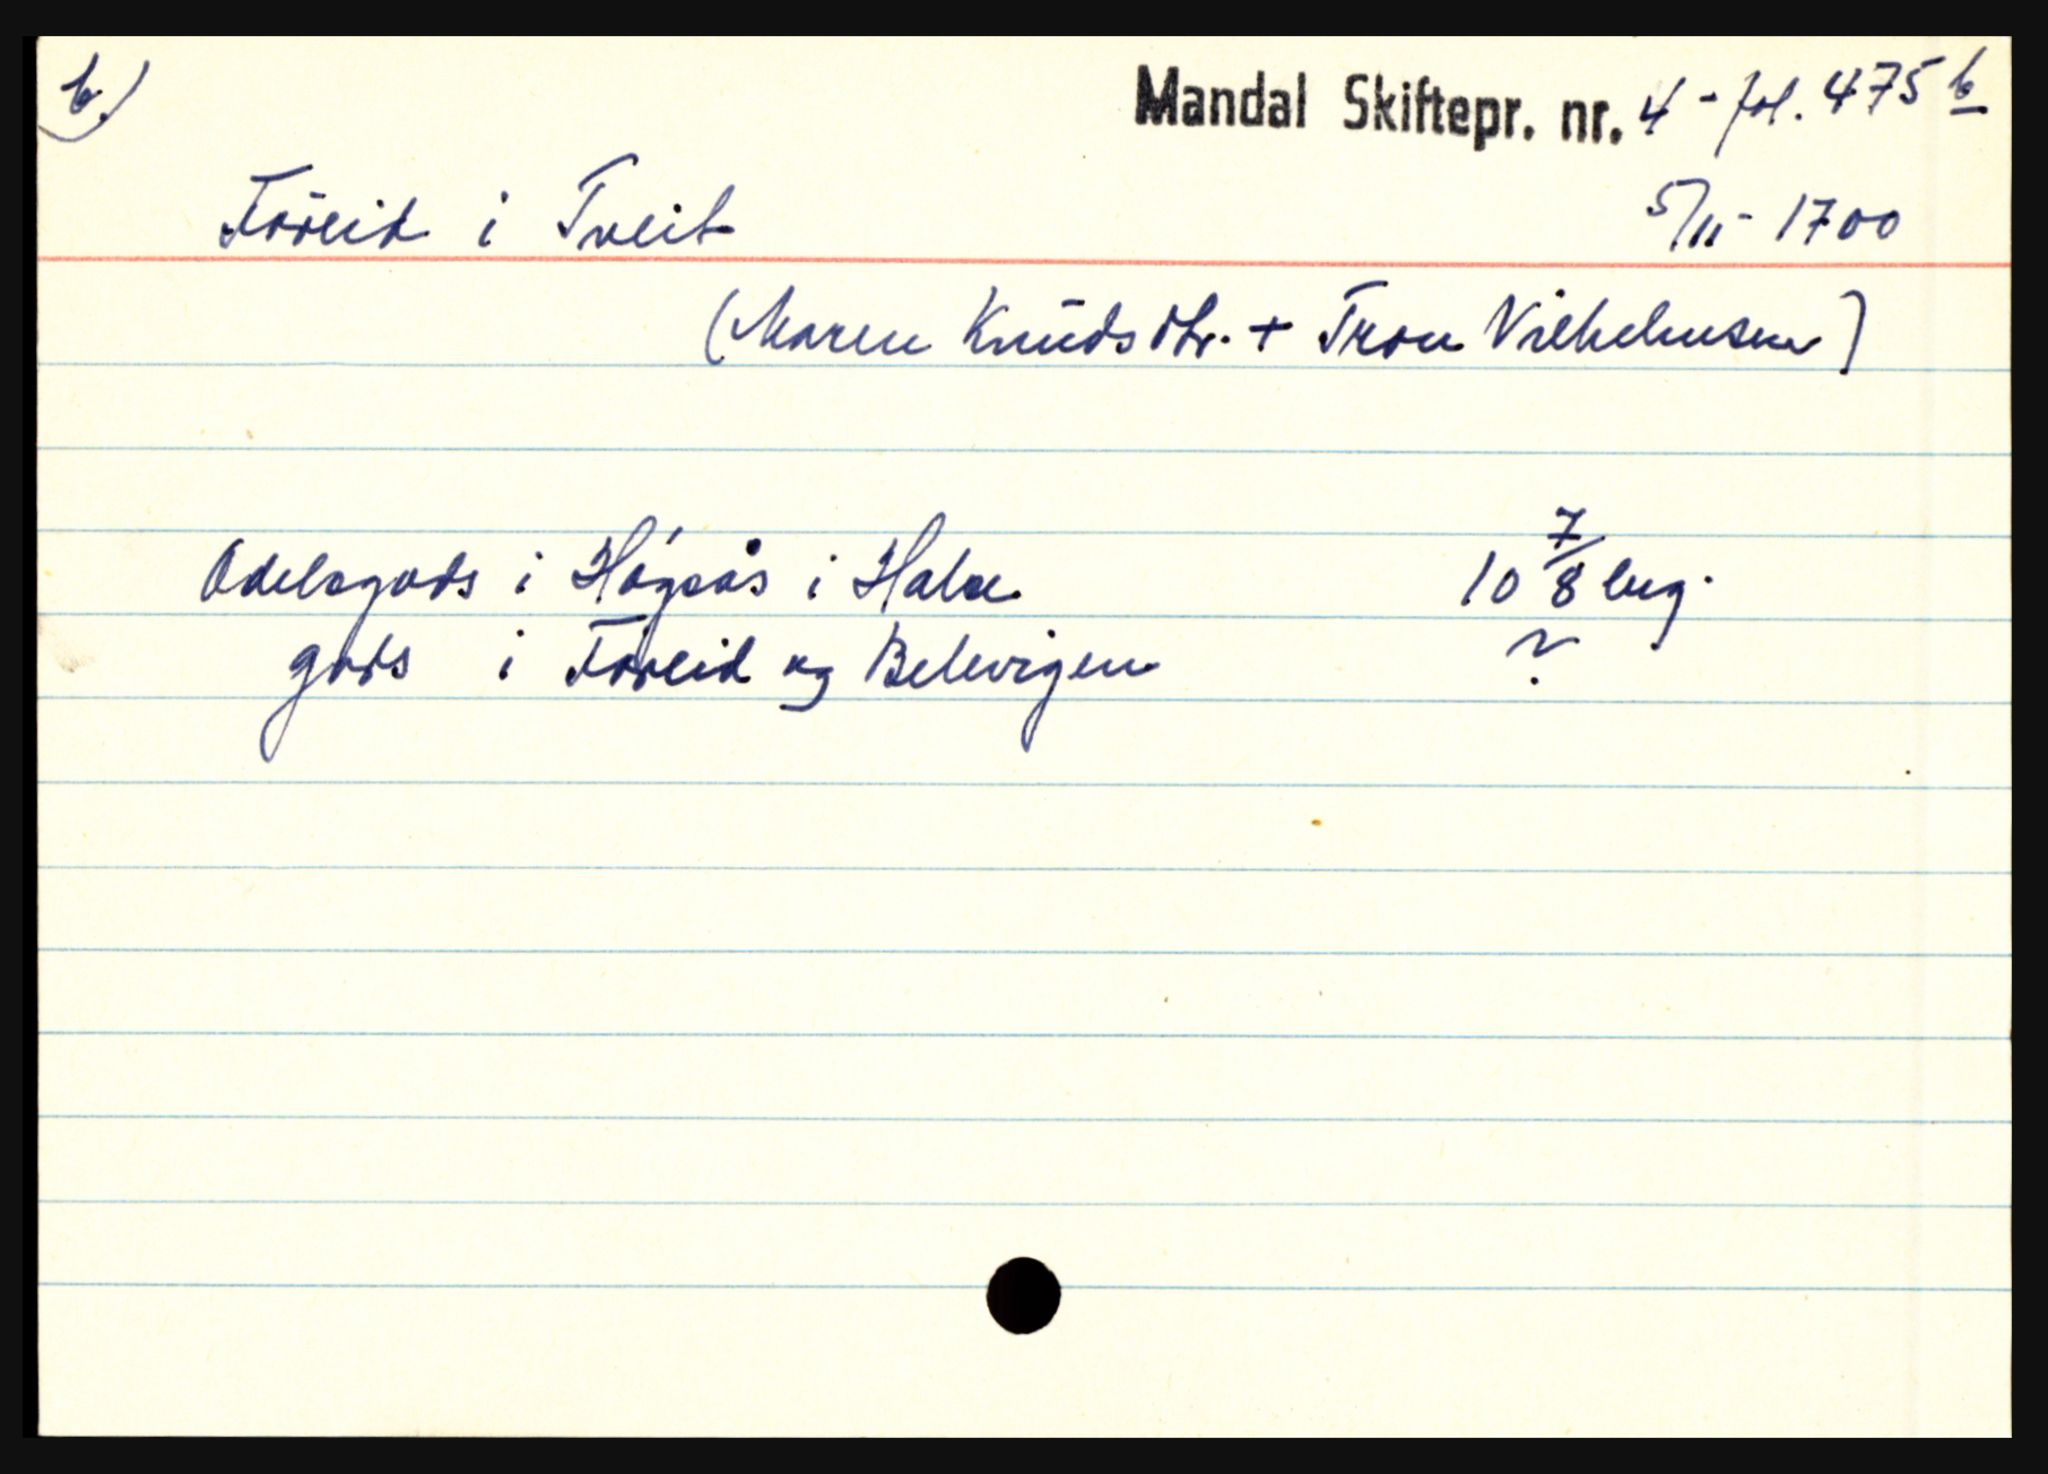 b.)
Mandal Skiftepr. nr. 4 - fol. 475 b
Foreid i Tveit 5/11 - 1700
(Maren Knudsdtr. + Tron Vilhelmsen)
Odelsgods i Høgsås i Halse 10 7/8 lug.
gods i Foreid og Belevigen ?